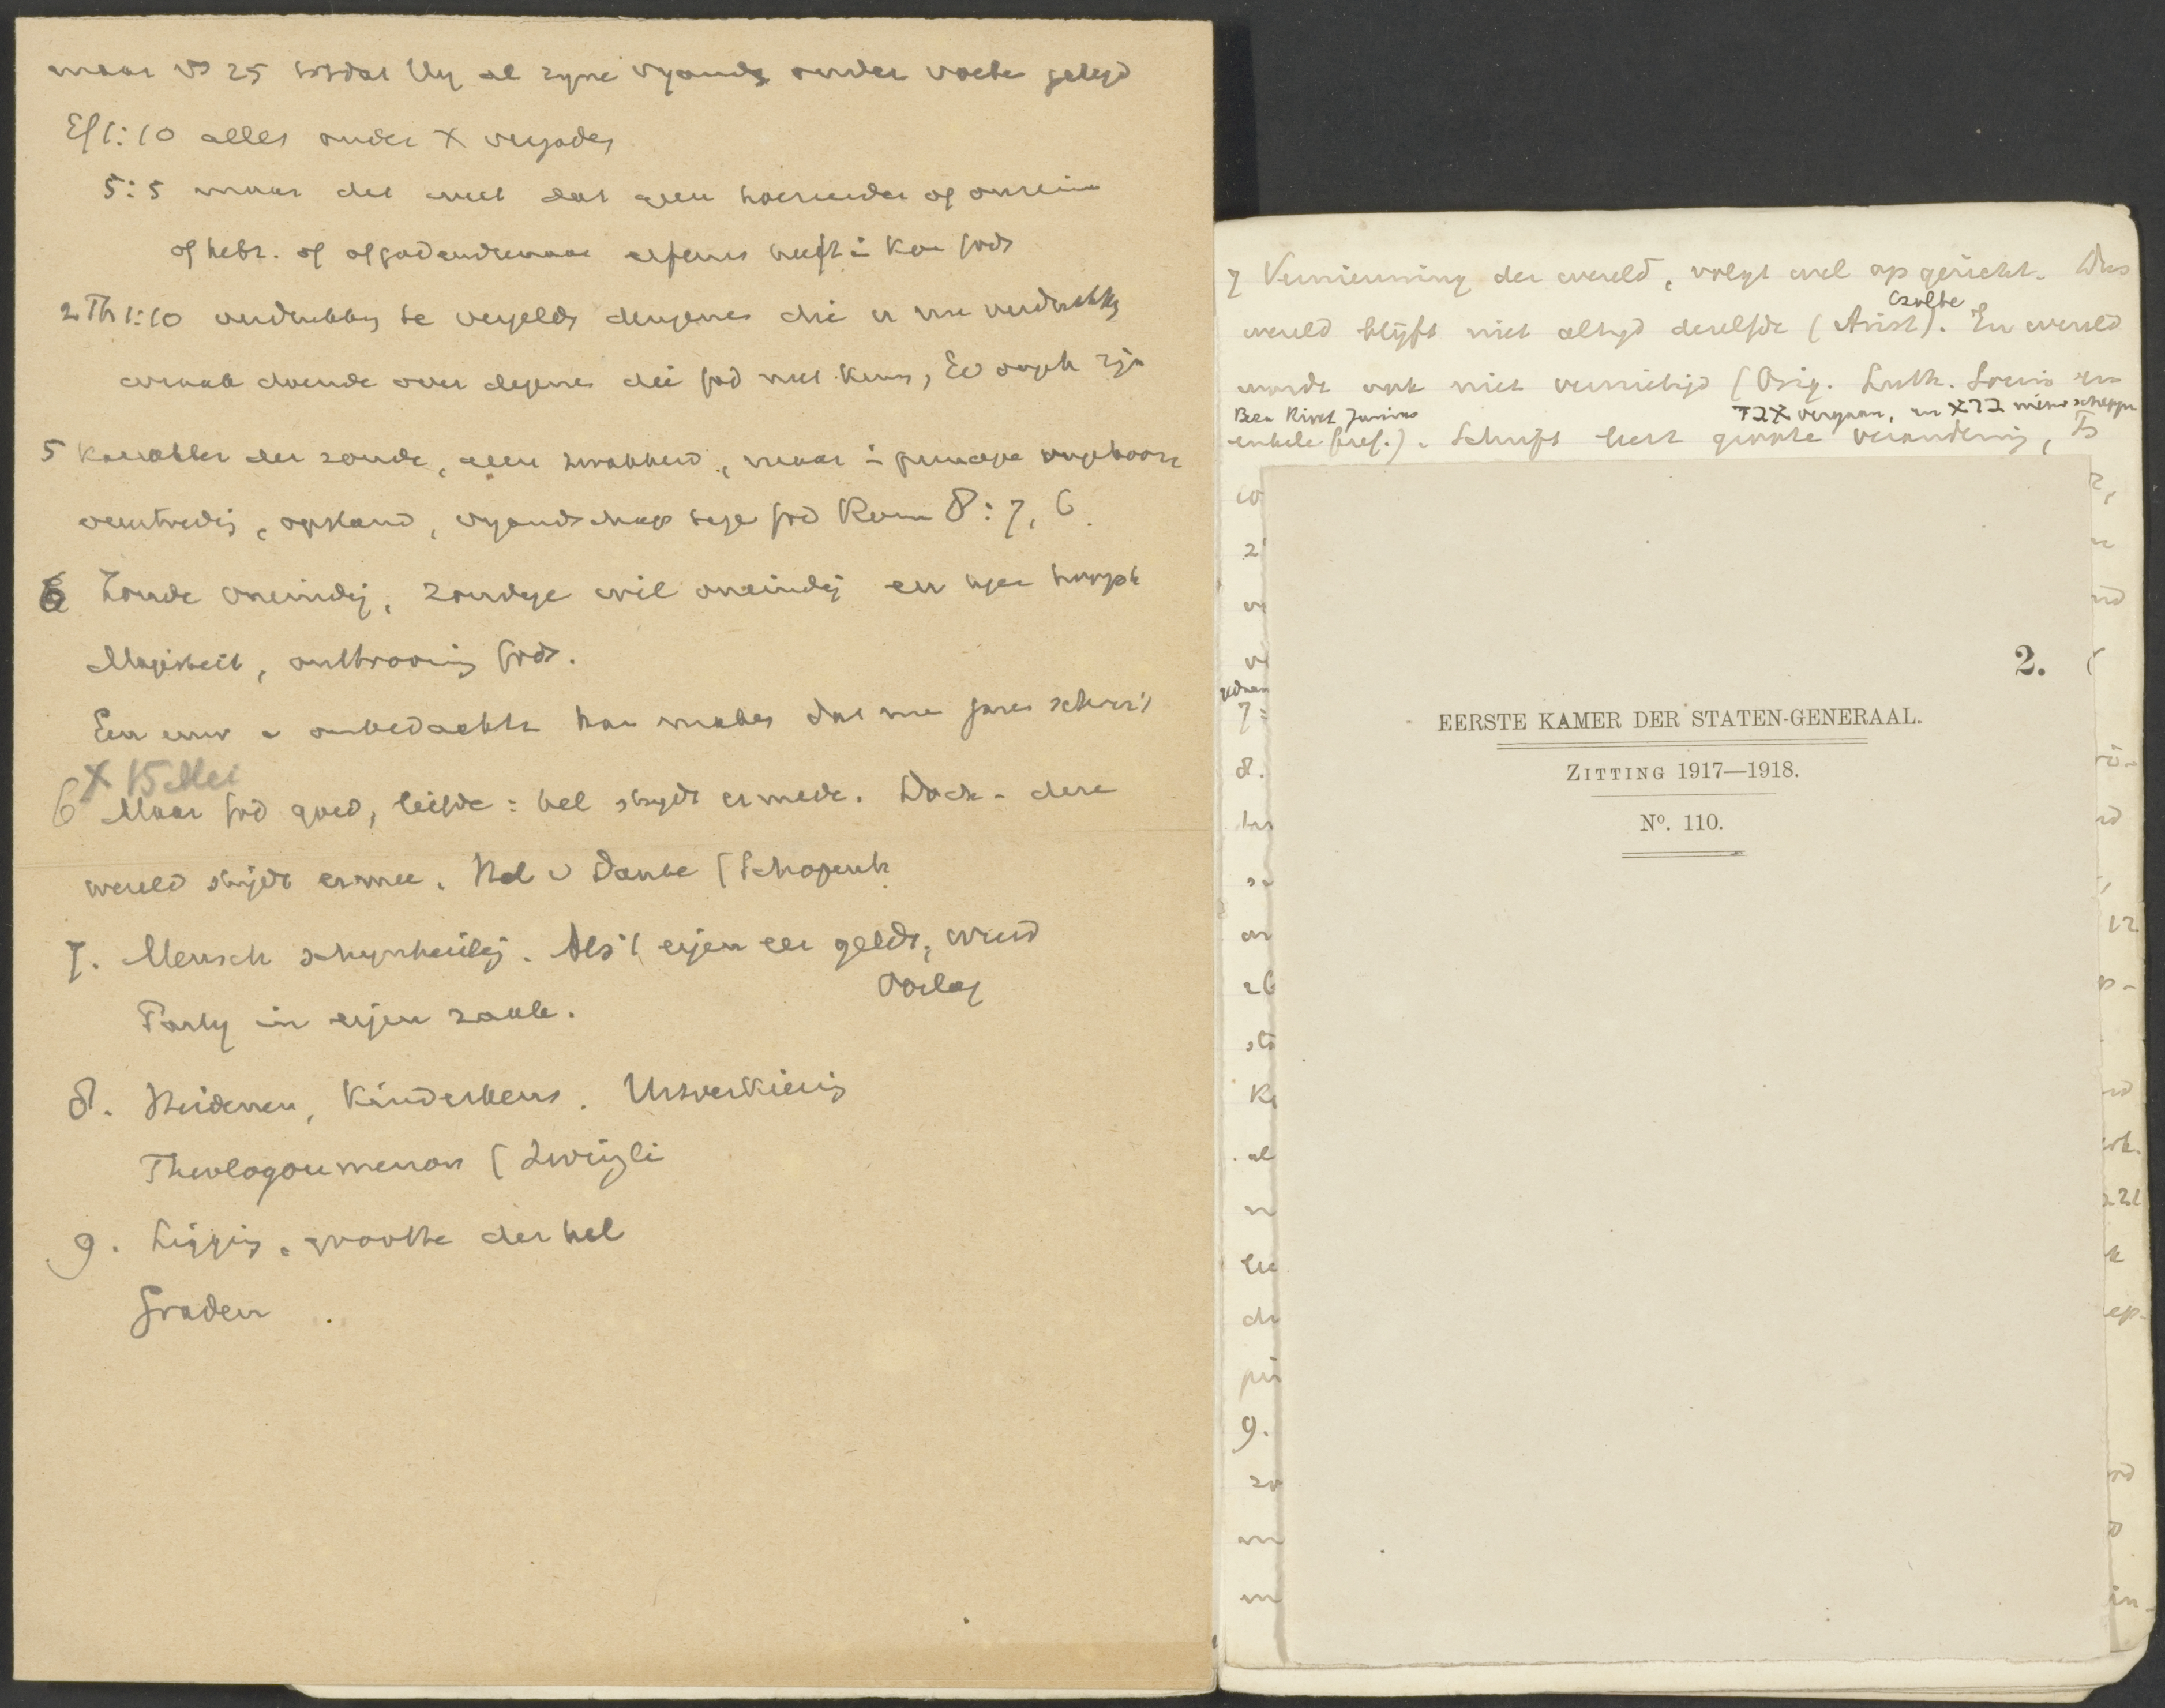 maar vs 25 totdat Hy al zyne vyands onder voete gelegd
Ef 1:10 alles onder X vergades
5:5 maar det weet dat geen hoereerder of onreine
of hebz. of afgodendienaar erfenis heeft i Kon Gods
2 Th 1:10 verdrukkg te vergelds dengenes die u nu verdrukkg
wraak doende over degenes die God niet kens, Ev ongeh zijn
5 Karakter der zonde, geen zwakheid, maar i principe ongehoorz
overtredig, opstand, vyandschap tege God Rom 8:7, 6.
6 Zonde oneindig, zondige wil oneindig en tegen hoogste
Majesteit, onttrooning Gods.
Een uur v onbedachtz kan makes dat me jares schreit
X 15 Mei
6 Maar God goed, liefde: hel strydt ermede. Doch - deze
wereld strijdt ermee. Hel v Dante (Schopenh.
7. Mensch schynheilig. Als 't eigen eer geldt, wreed
Oorlog
Party in eigen zaak.
8. Heidenen, Kinderkens. Uitverkiezig
Theologoumenon (Zwingli
9. Ligging, grootte der hel
Graden .
7 Vernieuwing der wereld, volgt wel op gericht. Dus
Czolbe
wereld blijft niet altyd dezelfde (Arist). En wereld
wordt ook niet vernietigd (Orig. Luth. Socin en
Beza Rivet Junius
72X vergaan, en X72 nieuw scheppen
enkele Geref.). Schrift leert groote verandering,
2.
EERSTE KAMER DER STATEN-GENERAAL.
ZITTING 1917—1918.
No. 110.
7
8.
9.